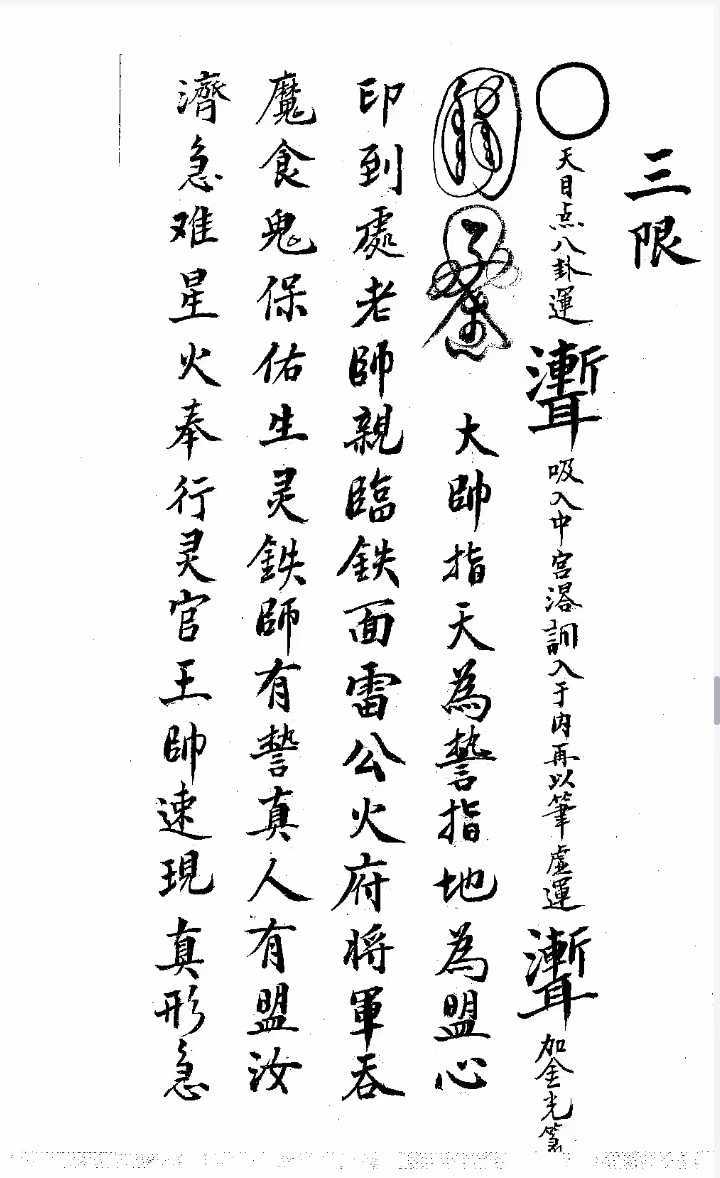 三限
天目点八卦運 魙 吸入中宮 入于内再以筆虛運 加金光篆
大帥指天為誓指地為盟心
印到處老師親臨鉄面雷公火府将軍吞
魔食鬼保佑生灵鉄師有誓真人有盟汝
濟急难星火奉行灵官王帥速現真形急